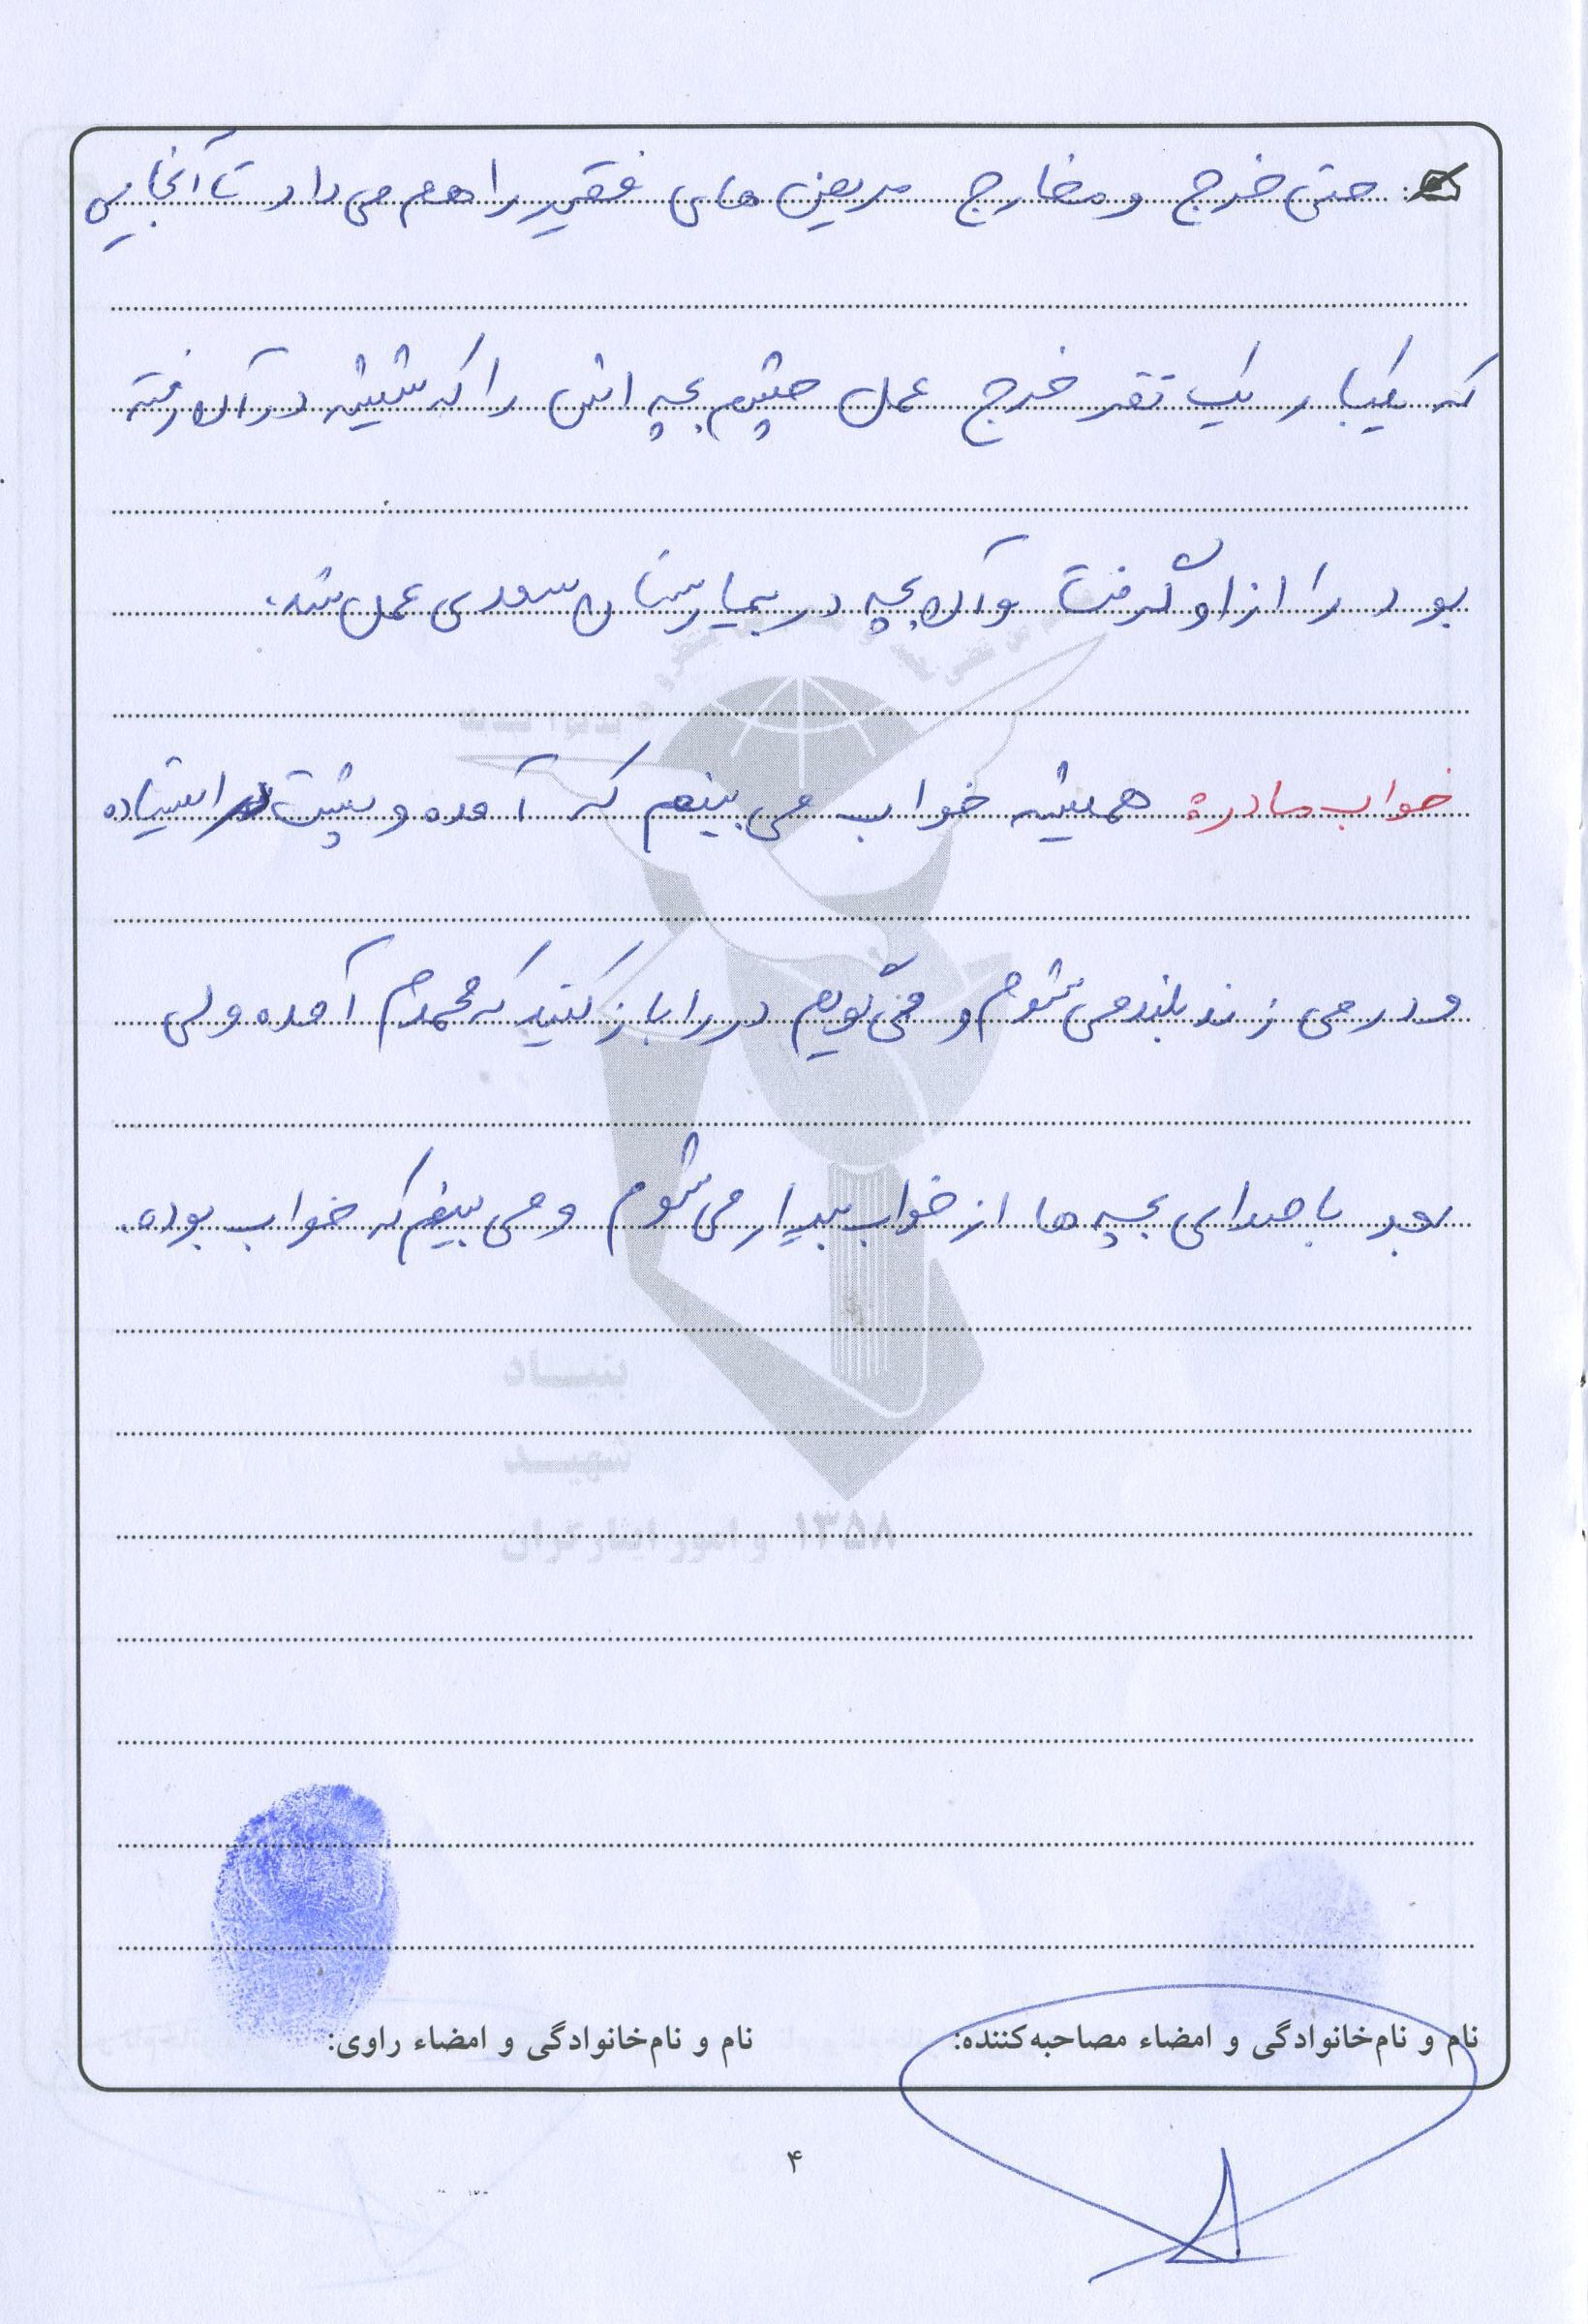 حتی خرج و مخارج مریض های فقیر را هم می داد تا آنجایی
که یکبار یک نفر خرج عمل چشم بچه اش را که شیشه در آن رفته
بود را از او گرفت و آن بچه در بیمارستان سعدی عمل شد.
خواب مادر: همیشه خواب می بینم که آمده و پشت در ایستاده
و در می زند بلند می شوم و می گویم در را باز کنید که محمدم آمده ولی
بعد با صدای بچه ها از خواب بیدار می شوم و می بینم که خواب بوده.
بنیاد
شهید
و امور ایثارگران ۱۳۵۸
نام و نام‌خانوادگی و امضاء مصاحبه‌کننده:
نام و نام‌خانوادگی و امضاء راوی:
۴